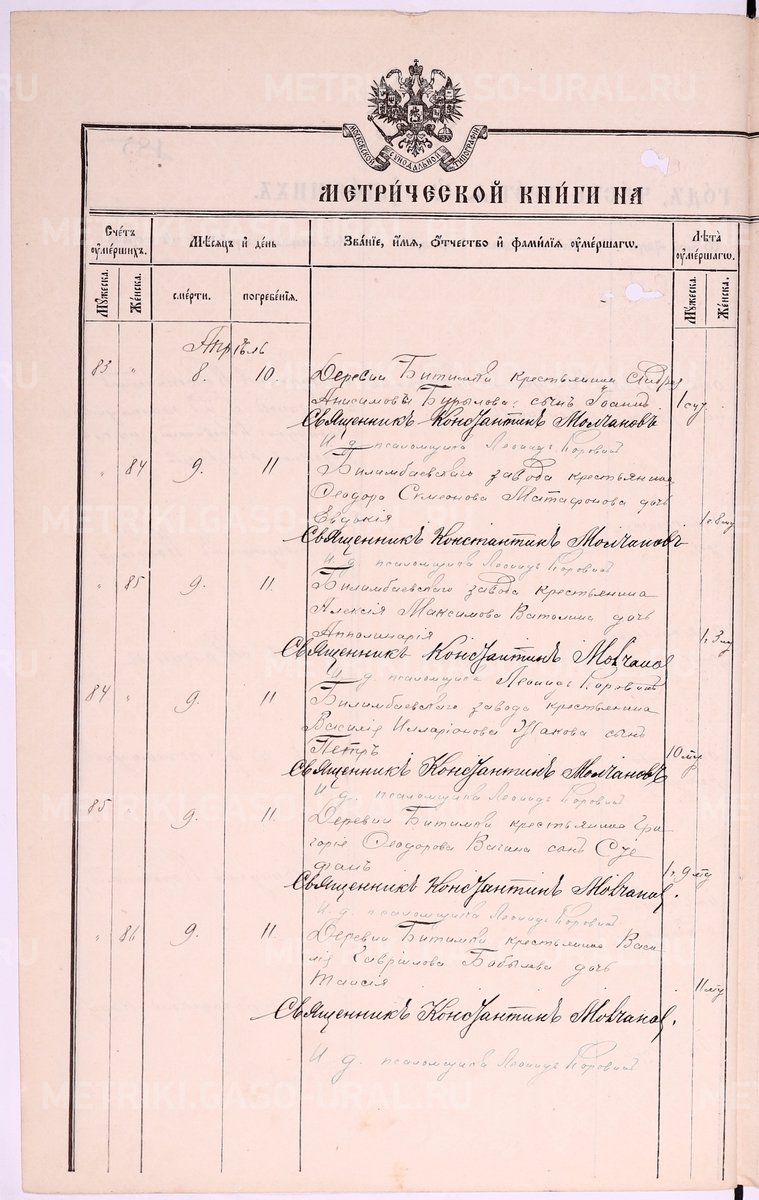 МОСКОВСКОЙ СѴНОДАЛЬНОЙ ТИПОГРАФІИ
МЕТРИ́ЧЕСКОЙ КНИ́ГИ НА
Сче́тъ ᲂумершихъ.
Мѣсѧцъ и҆ де́нь
Зва́нїе, и҆́мѧ, ѻ҆́тчество и҆ фами́лїѧ ᲂуме́ршагѡ.
Лѣ́та ᲂуме́ршагѡ.
Мꙋжеска. Же́нска.
сме́рти. погребе́нїѧ.
Мꙋжеска. Же́нска.
Апрѣль
83 " 8. 10. Деревни Битимки крестьянина
Анисимова Бурылова сынъ Іоаннъ 1
Священникъ Константинъ Молчановъ
И. д. псаломщика Леонидъ Коровинъ
" 84 9. 11 Билимбаевскаго завода крестьянина
Ѳеодора Семеонова Матафонова дочь
Евдокія
Священникъ Константинъ Молчановъ
И. д. псаломщика Леонидъ Коровинъ
" 85 9. 11. Билимбаевскаго завода крестьянина
Алексія Максимова Ватолина дочь
Апполинарія
Священникъ Константинъ Молчановъ
И. д. псаломщика Леонидъ Коровинъ
84 " 9. 11 Билимбаевскаго завода крестьянина
Василія Илларіонова Жакова сынъ
Петръ 10
Священникъ Константинъ Молчановъ
И. д. псаломщика Леонидъ Коровинъ
85 " 9. 11. Деревни Битимки крестьянина Гри-
горія Ѳеодорова Вагина сынъ Сте-
фанъ
Священникъ Константинъ Молчановъ.
И. д. псаломщика Леонидъ Коровинъ
" 86 9. 11. Деревни Битимки крестьянина Васи-
лія Гавріилова Бабылева дочь
Таисія 11
Священникъ Константинъ Молчановъ.
И. д. псаломщика Леонидъ Коровинъ
METRIKI.GASO-URAL.RU